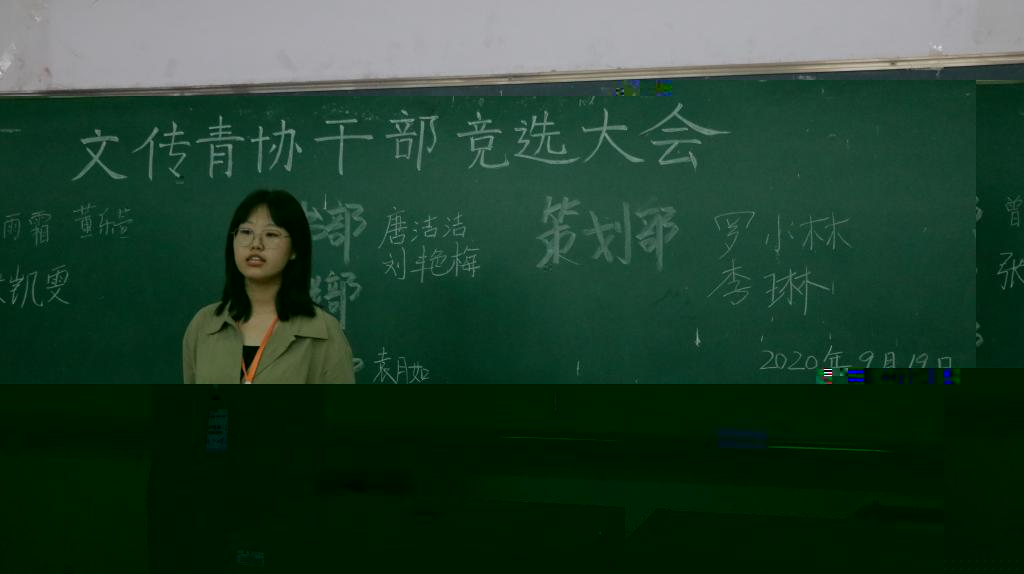 文传青协干部竞选大会
雨霜 董乐萱
凯雯
部 唐洁洁
刘艳梅
部
袁月如
策划部 罗小林
李琳
2020年9月19日
曾
张